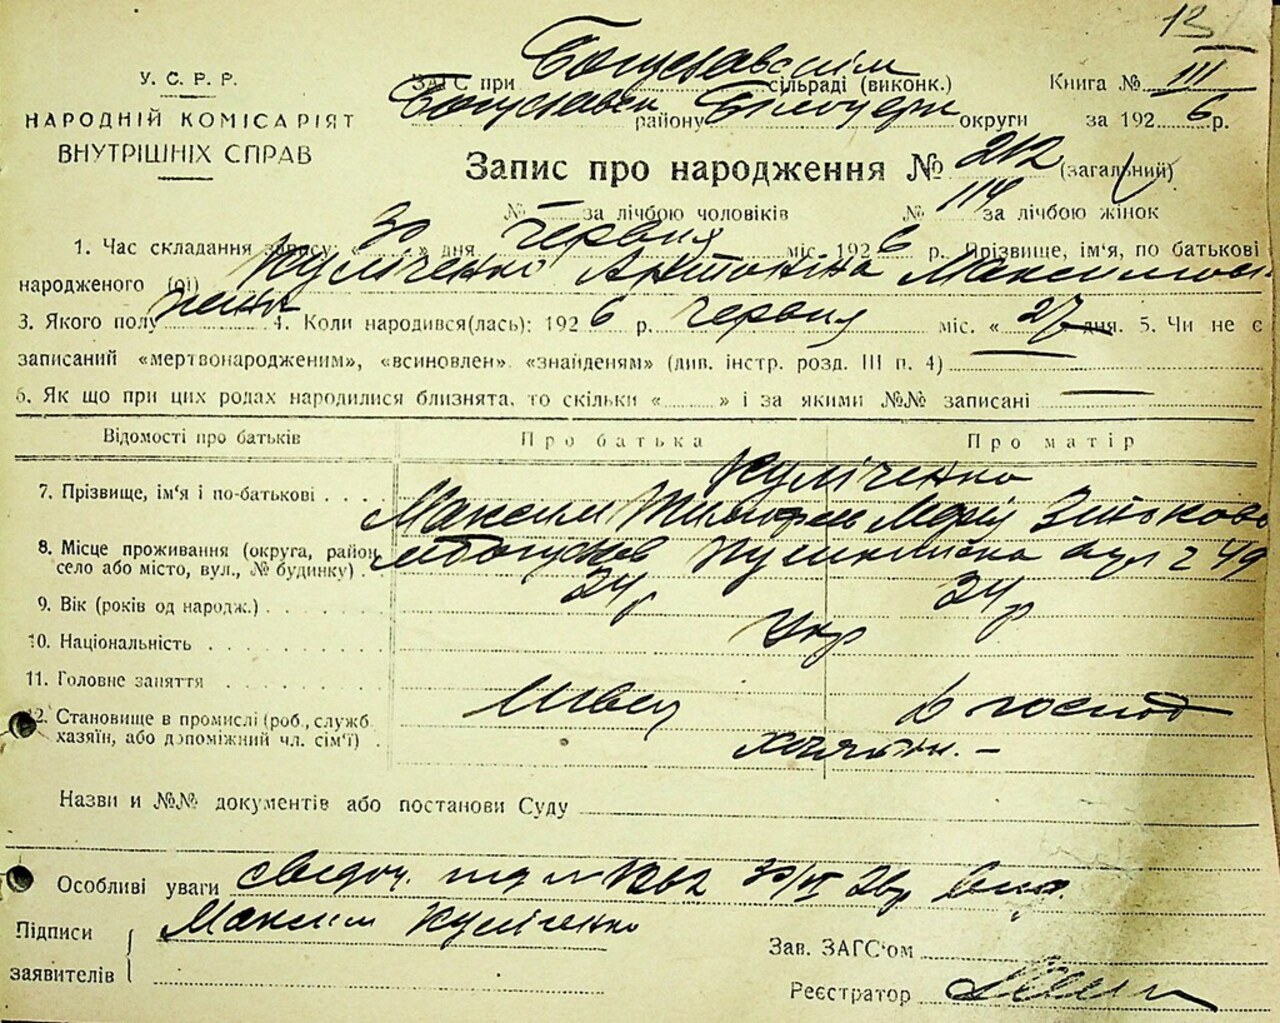 13
У. С. Р. Р.
НАРОДНІЙ КОМІСАРІЯТ
ВНУТРІШНІХ СПРАВ
ЗАГС при Богуславскім сільраді (виконк.) Книга № III
Богуславськ району Білоцерк округи за 1926 р.
Запис про народження № 212 (загальний)
№ за лічбою чоловіків № 114 за лічбою жінок
1. Час складання запису: « 30 » дня червня міс. 1926 р. Прізвище, ім'я, по батькові
народженого (ої) Куліченко Антоніна Максимовн
3. Якого полу жень 4. Коли народився(лась): 1926 р. червня міс. « 27 дня. 5. Чи не є
записаний «мертвонародженим», «всиновлен» «знайденям» (див. інстр. розд. III п. 4)
6. Як що при цих родах народилися близнята, то скільки « » і за якими №№ записані
Відомості про батьків Про батька Про матір
Куліченко
7. Прізвище, ім'я і по-батькові
Максим Тимофев Марія Зіньково
8. Місце проживання (округа, район, село або місто, вул., № будинку)
м Богуслав Пушкінська вул 49
9. Вік (років од народж.) 34 р 34 р
10. Національність Укр
11. Головне заняття
Швець д господ
12. Становище в промислі (роб., служб. хазяїн, або допоміжний чл. сім'ї)
Назви и №№ документів або постанови Суду
Особливі уваги свидоч. 30/VI 26 р
Підписи Максим Куліченко
заявителів
Зав. ЗАГС'ом
Реєстратор